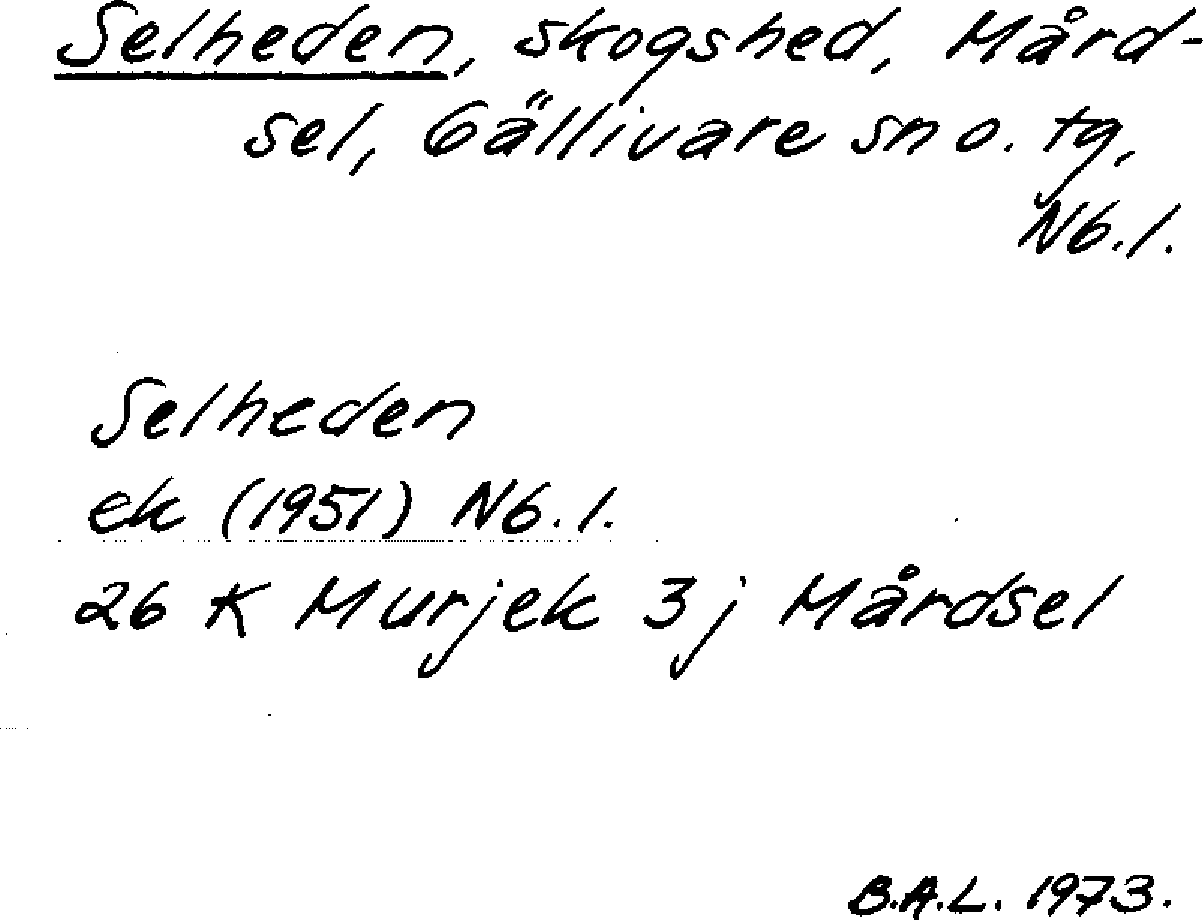 Selheden, skogshed, Mård-
sel, Gällivare sn o. tg,
Nb.l.
Selheden
ek (1951) Nb.l.
26 K Murjek 3j Mårdsel
B.A.L. 1973.